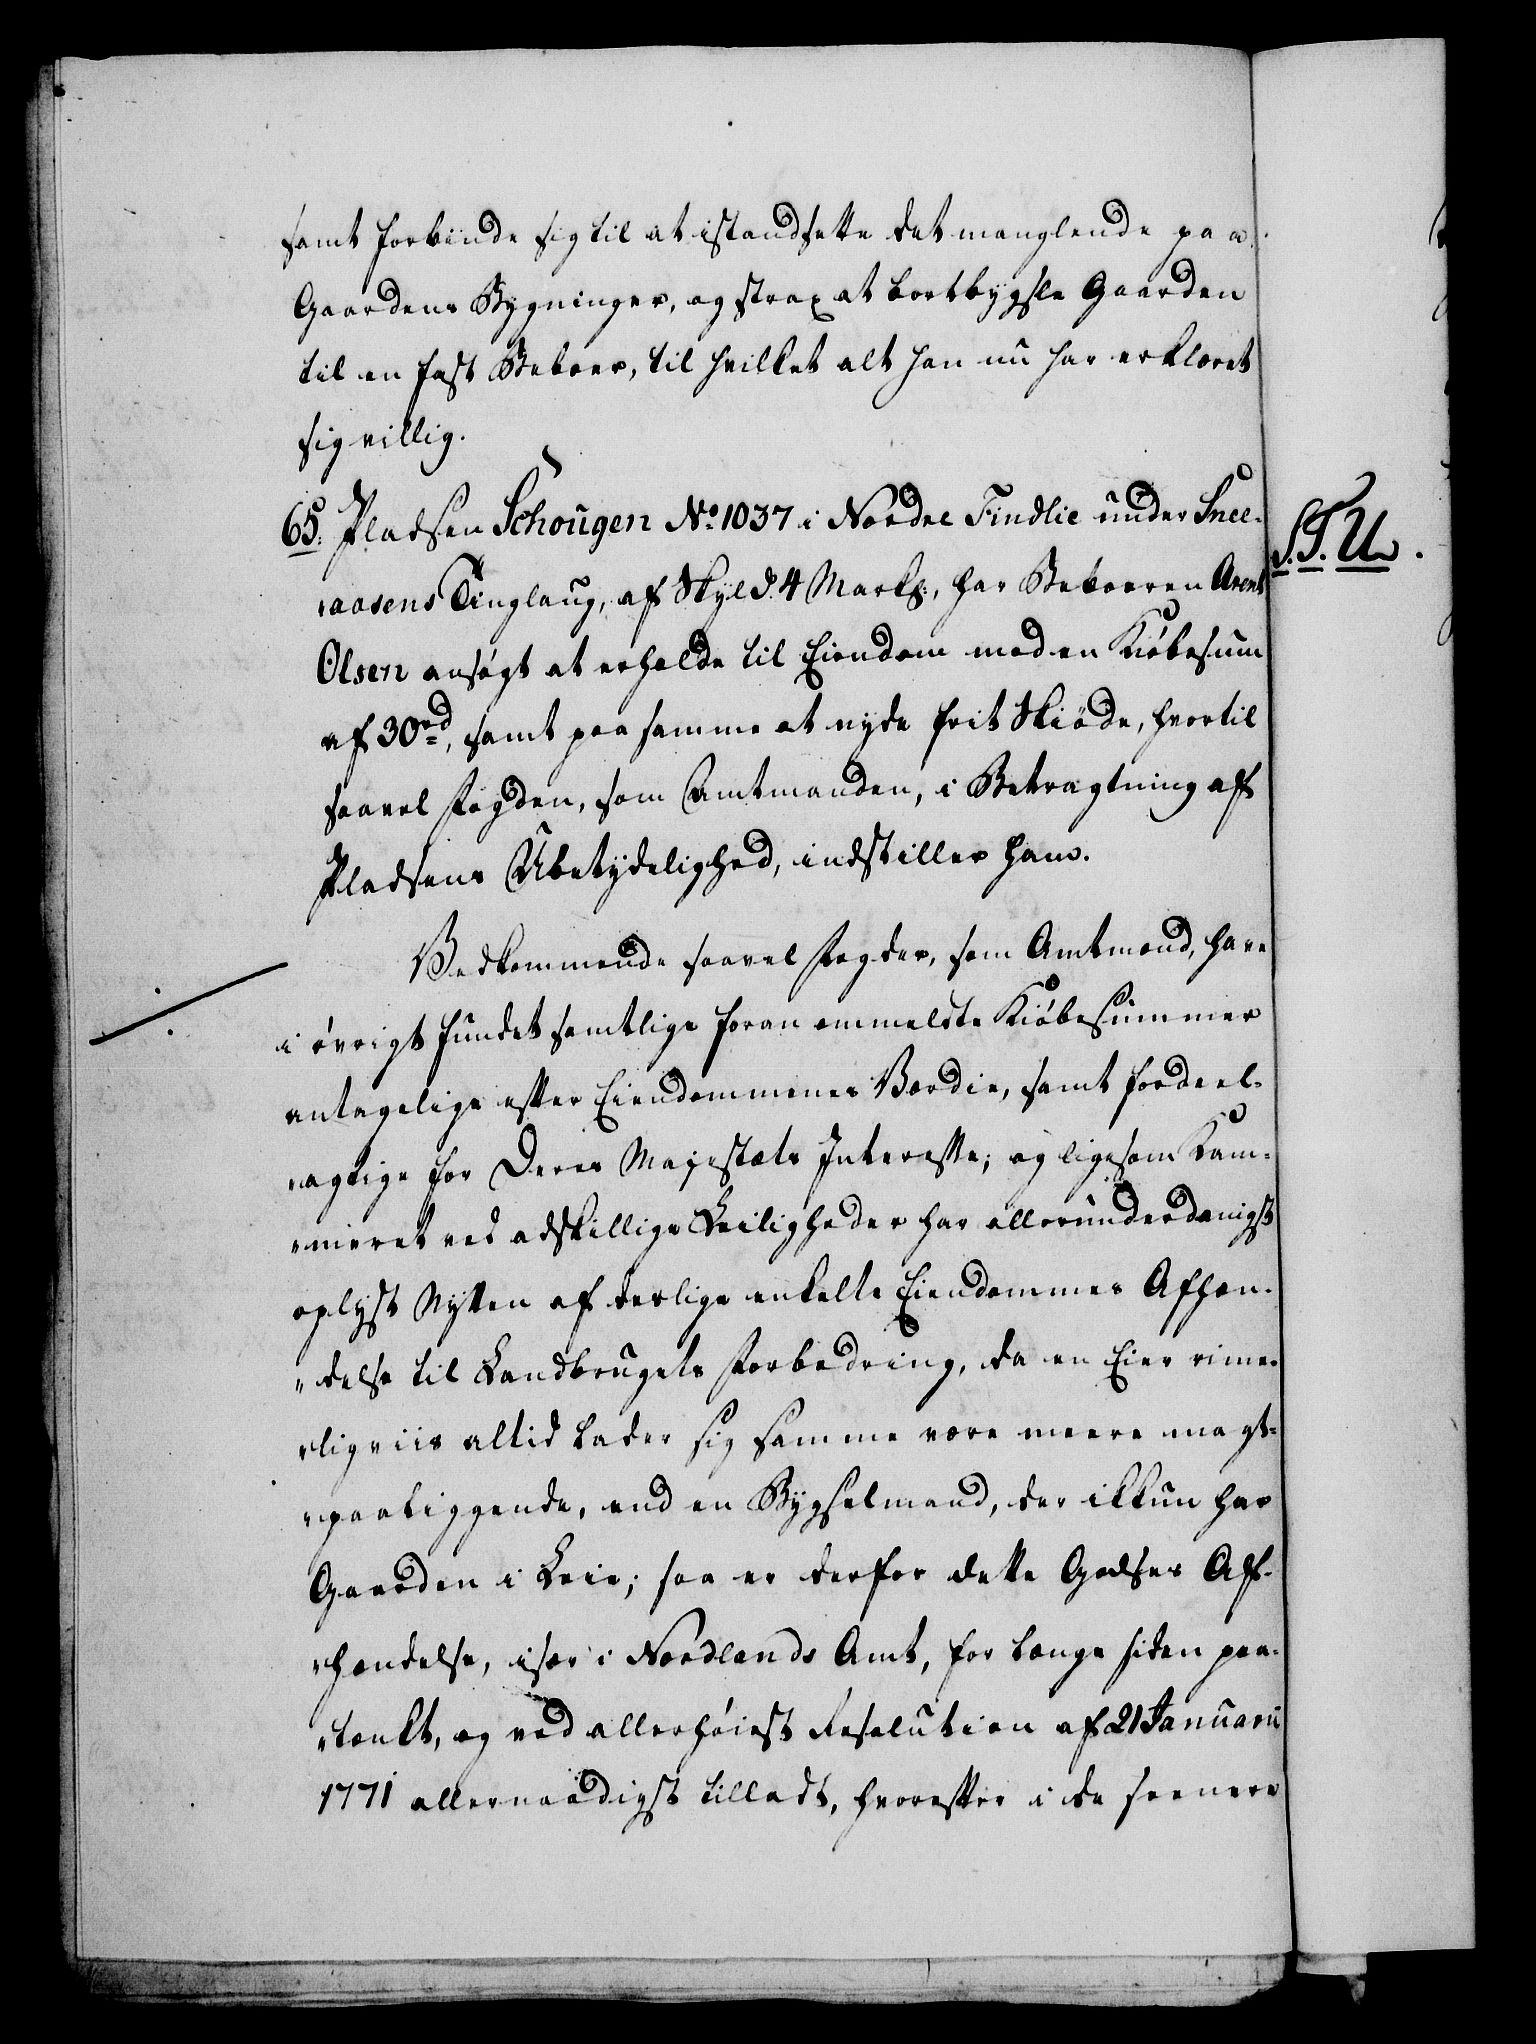 samt forbinde sig til at istandsætte det manglende paa
Gaardens Bygninger, og strax at bortbygsle Gaarden
til en fast Beboer, til hvilket alt han nu har erklæret
sig villig.
65. Pladsen Schougen No 1037 i Nordre Findlie under Snee-
"aasens Tinglaug, af Skyld 4 Markl:, har Beboeren Arent
Olsen ansøgt at erholde til Eiendom mod en Kiøbesum
af 30 rd, samt paa samme at nyde frit Skiøde, hvortil
saavel Fogden, som Amtmanden, i Betragtning af
Pladsens Ubetydelighed, indstiller ham.
S.T.U.
Vedkommende saavel Fogder, som Amtmænd, have
i øvrigt fundet samtlige foranommeldte Kiøbesummer
antagelige efter Eiendommenes Værdie, samt fordeel-
"agtige for Deres Majestæts Interesse; og ligesom Kam-
"meret ved adskillige Leiligheder har allerunderdanigst
oplyst Nytten af deslige enkelte Eiendommes Afhæn-
"delse til Landbrugets Forbedring, da en Eier rime-
"ligviis altid lader sig samme være meere magt-
"paaliggende, end en Bygselmand, der ikkun har
Gaarden i Leie; saa er derfor dette Godses Af-
"hændelse, især i Nordlands Amt, for længe siden paa-
"tænkt, og ved allerhøiest Resolution af 21 Januarii
1771 allernaadigst tilladt, hvorefter i de seenere